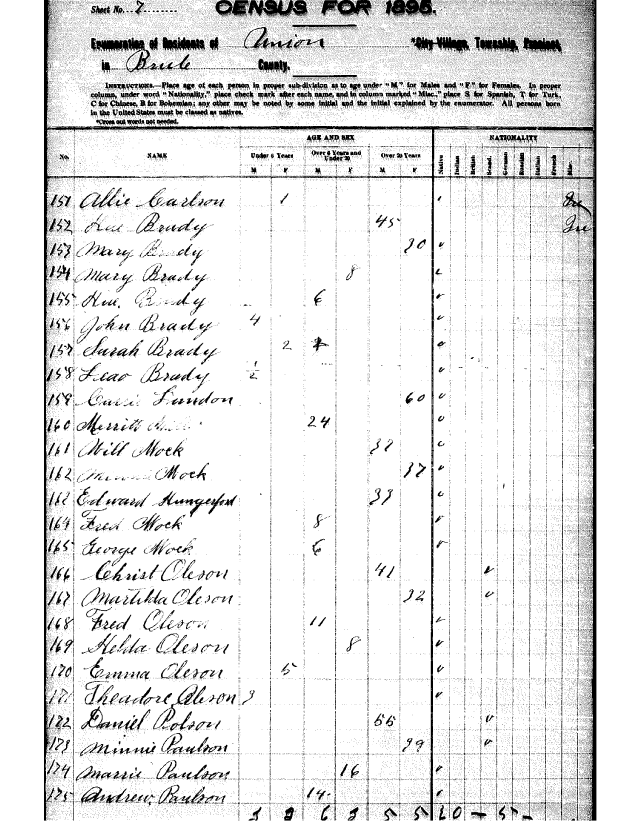 Sheet No. 7
CENSUS FOR 1895.
Enumeration of Residents of Union *City-Village, Township, Precinct,
in Brule County.
INSTRUCTIONS.—Place age of each person in proper sub-division as to age under "M" for Males and "F" for Females. In proper
column, under word "Nationality," place check mark after each name, and in column marked "Misc.," place S for Spanish, T for Turk,
C for Chinese, B for Bohemian; any other may be noted by some initial and the initial explained by the enumerator. All persons born
in the United States must be classed as natives.
*Cross out words not needed.
AGE AND SEX NATIONALITY
No. NAME Under 6 Years Over 6 Years and Under 20 Over 20 Years Native Scand. German Russian Italian French Misc.
M F M F M F
151 Allie Carlson 1 ✓ Ire
152 Brady 45 Ire
153 Mary Brady 30 ✓
154 Mary Brady 8 ✓
155 Brady 6 ✓
156 John Brady 4 ✓
157 Sarah Brady 2 ✓
158 Leao Brady 1/2 ✓
159 Carrie Lundon 60 ✓
160 Merritt 24 ✓
161 Will Mock ✓
162 Mock 37 ✓
162 Edward Hungerford 33 ✓
164 Fred Mock 8 ✓
165 George Mock 6 ✓
166 Christ Oleson 41 ✓
167 Martilda Oleson 32 ✓
168 Fred Oleson 11 ✓
169 Helda Oleson 8 ✓
170 Emma Oleson 5 ✓
171 Theadore Oleson 3 ✓
172 Daniel Polson 66 ✓
173 Minnie Paulson 39 ✓
174 Marrie Paulson 16 ✓
175 Andrew Paulson 14 ✓
3 6 3 5 5 — 5 —